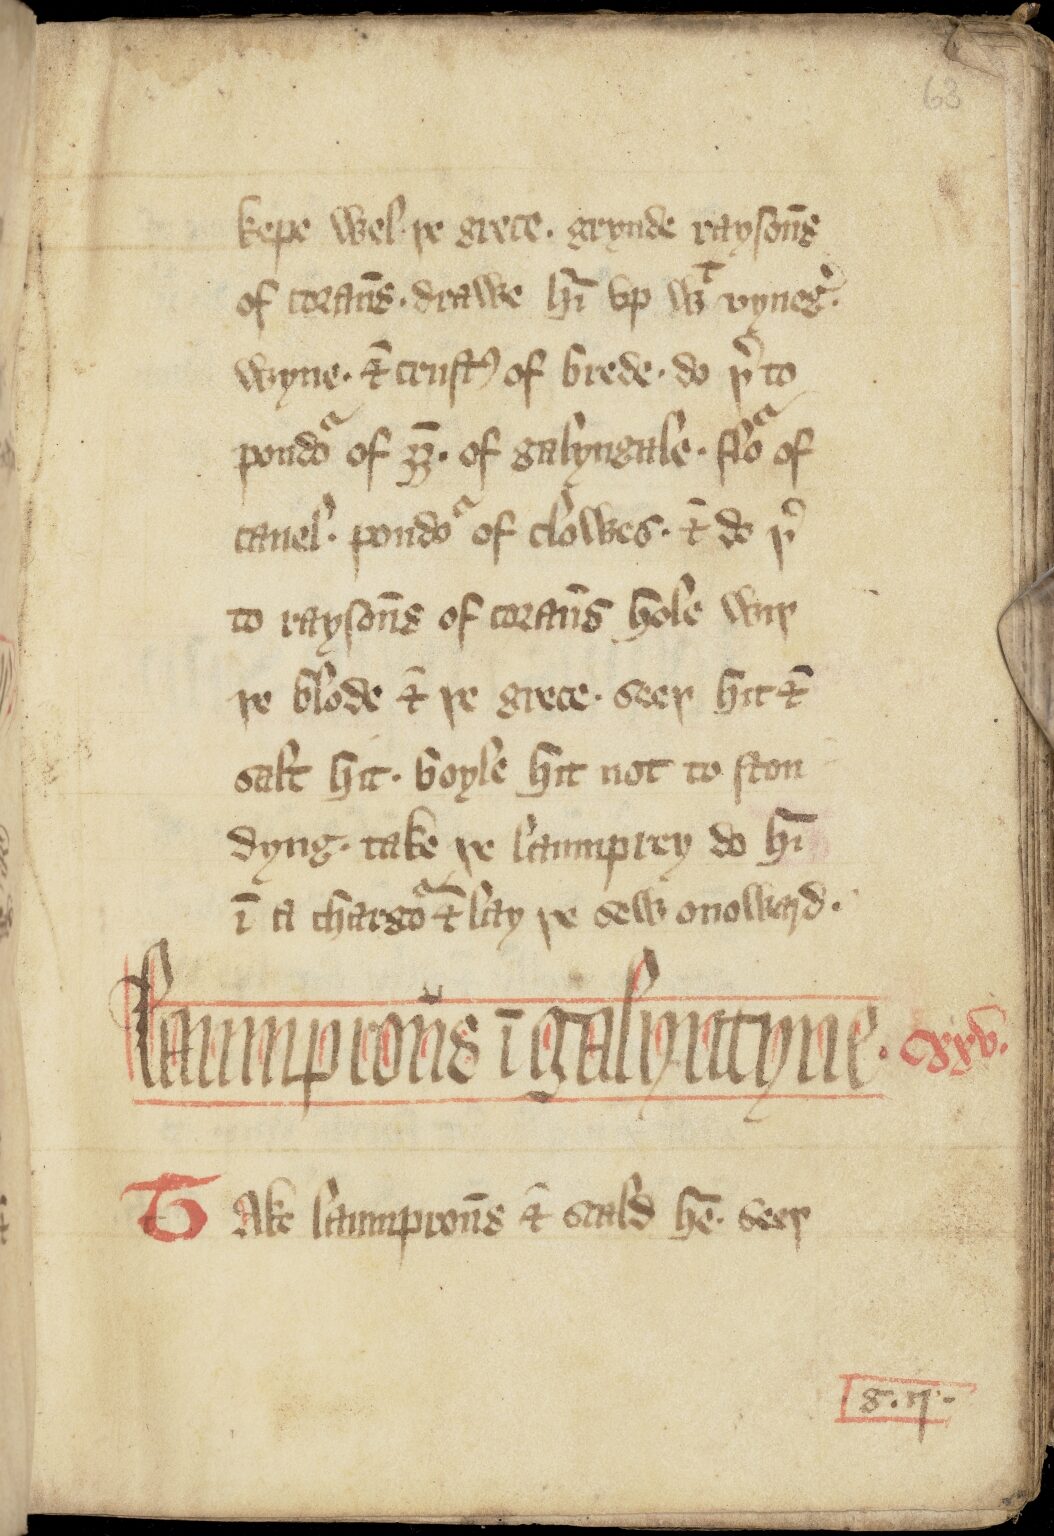 63
kepe wel þe grece. grynde raysoūs
of coraūs. drawe hī vp wᵗ vyneg̛.
wyne. & crustꝭ of brede. do þ̛to
poudoᵃ of gȳg. of galyngale. floᵃ of
canel. poudoᵃ of clowes. & do þ̛
to raysoūs of coraūs hole wiþ
þe blode & þe grece. seeþ hit &
salt hit. boyle hit not to ston
dyng. take þe laumprey do hī
ī a chargoᵃ & lay þe sew onoward.
laumproūs ī galyntyne. cxxv.
TAke laumproūs & scald hē. seeþ
g. ij.